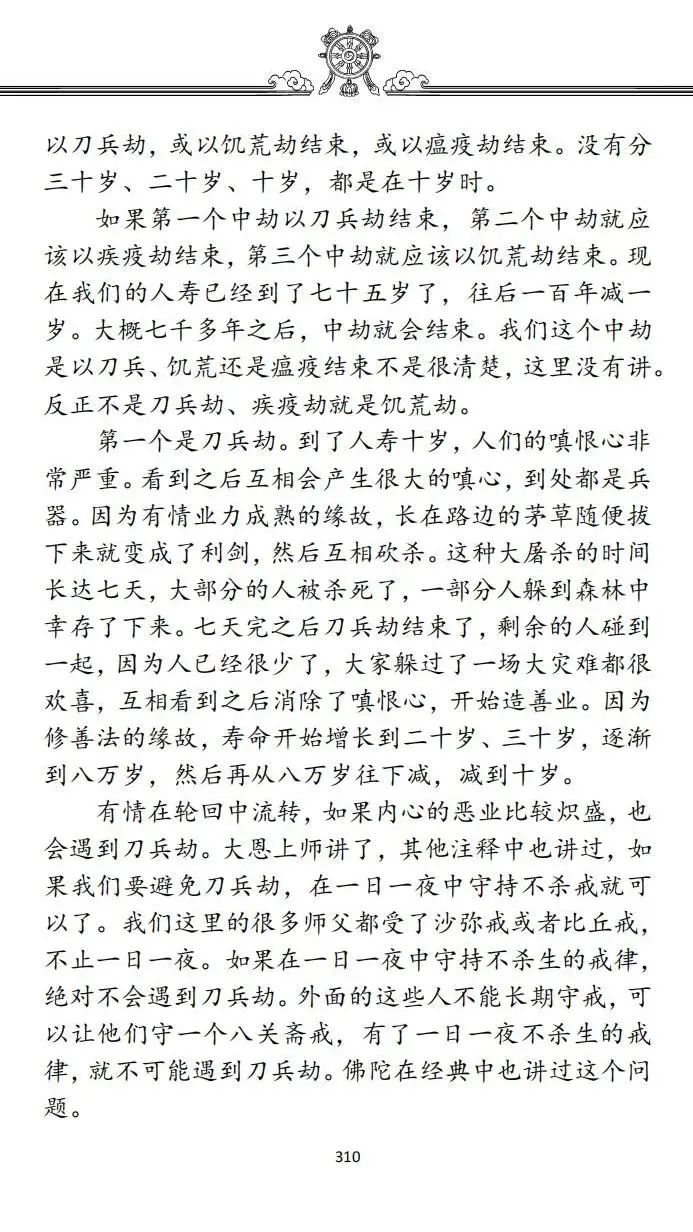 以刀兵劫，或以饥荒劫结束，或以瘟疫劫结束。没有分
三十岁、二十岁、十岁，都是在十岁时。
如果第一个中劫以刀兵劫结束，第二个中劫就应
该以疾疫劫结束，第三个中劫就应该以饥荒劫结束。现
在我们的人寿已经到了七十五岁了，往后一百年减一
岁。大概七千多年之后，中劫就会结束。我们这个中劫
是以刀兵、饥荒还是瘟疫结束不是很清楚，这里没有讲。
反正不是刀兵劫、疾疫劫就是饥荒劫。
第一个是刀兵劫。到了人寿十岁，人们的嗔恨心非
常严重。看到之后互相会产生很大的嗔心，到处都是兵
器。因为有情业力成熟的缘故，长在路边的茅草随便拔
下来就变成了利剑，然后互相砍杀。这种大屠杀的时间
长达七天，大部分的人被杀死了，一部分人躲到森林中
幸存了下来。七天完之后刀兵劫结束了，剩余的人碰到
一起，因为人已经很少了，大家躲过了一场大灾难都很
欢喜，互相看到之后消除了嗔恨心，开始造善业。因为
修善法的缘故，寿命开始增长到二十岁、三十岁，逐渐
到八万岁，然后再从八万岁往下减，减到十岁。
有情在轮回中流转，如果内心的恶业比较炽盛，也
会遇到刀兵劫。大恩上师讲了，其他注释中也讲过，如
果我们要避免刀兵劫，在一日一夜中守持不杀戒就可
以了。我们这里的很多师父都受了沙弥戒或者比丘戒，
不止一日一夜。如果在一日一夜中守持不杀生的戒律，
绝对不会遇到刀兵劫。外面的这些人不能长期守戒，可
以让他们守一个八关斋戒，有了一日一夜不杀生的戒
律，就不可能遇到刀兵劫。佛陀在经典中也讲过这个问
题。
310